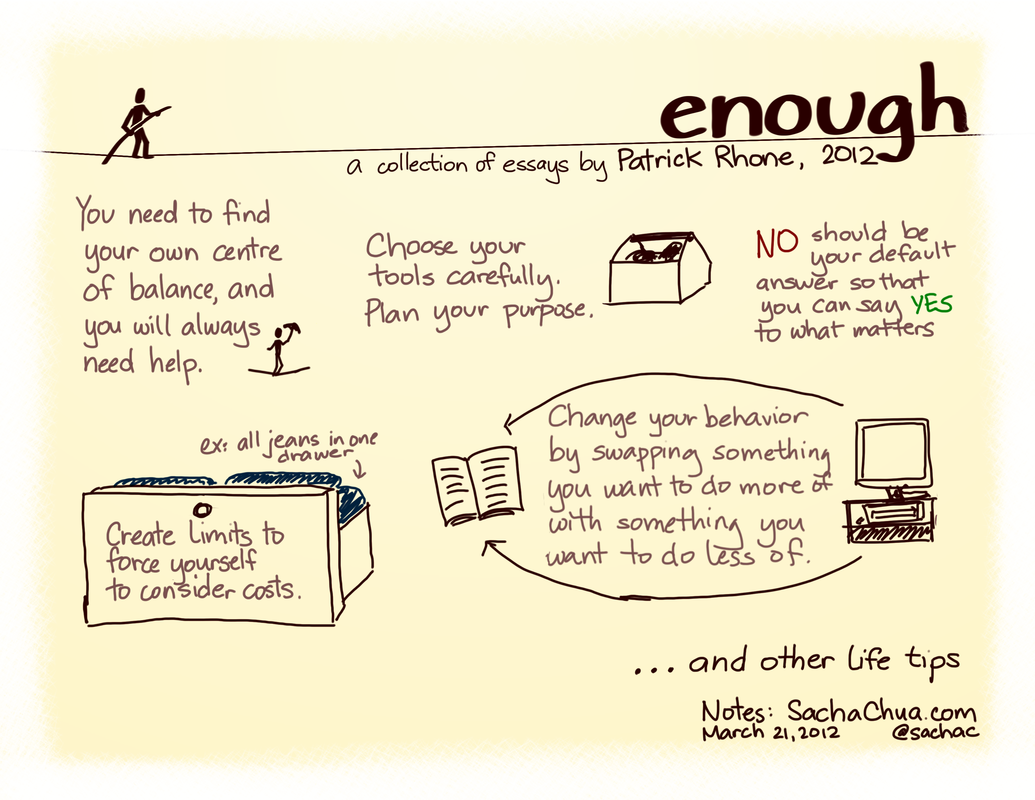 enough
a collection of essays by Patrick Rhone, 2012
You need to find
your own centre
of balance, and
you will always
need help.
Choose your
tools carefully.
Plan your purpose.
NO should be
your default
answer so that
you can say YES
to what matters
ex: all jeans in one
drawer
Create Limits to
force yourself
to consider costs.
Change your behavior
by swapping something
you want to do more of
with something you
want to do less of.
... and other life tips
Notes: SachaChua.com
March 21, 2012 @sachac